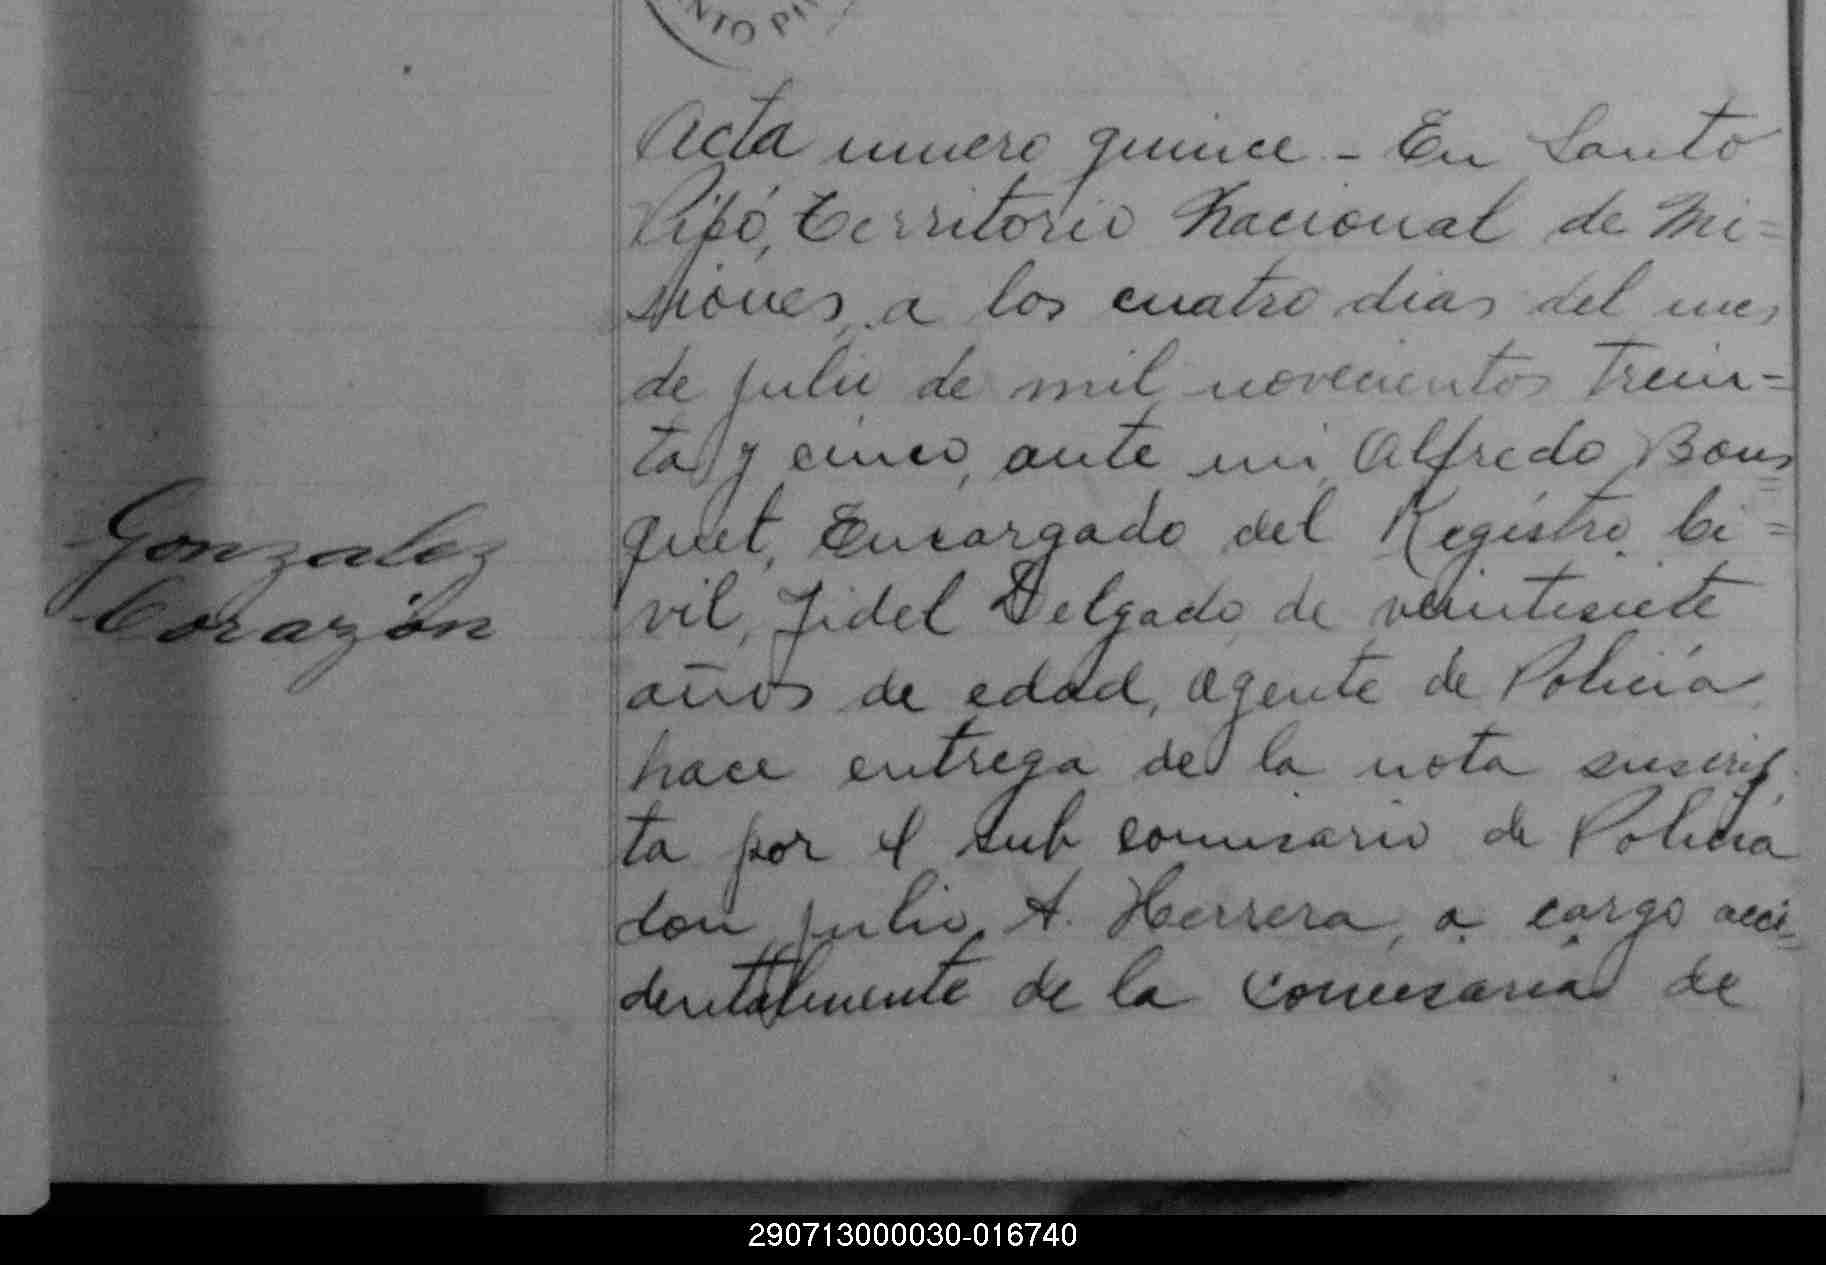 NTO PI
Acta numero quince - En Santo
Pipó, Territorio Nacional de Mi=
siones, a los cuatro dias del mes
de julio de mil novecientos trein=
ta y cinco, ante mi, Alfredo Bous=
quet, Encargado del Registro Ci=
vil, Fidel Delgado, de veintisiete
años de edad, agente de Policía,
hace entrega de la nota suscrip-
ta por el sub comisario de Policía
don julio A. Herrera, a cargo acci-
dentalmente de la comisaria de
Gonzalez
Corazón
290713000030-016740